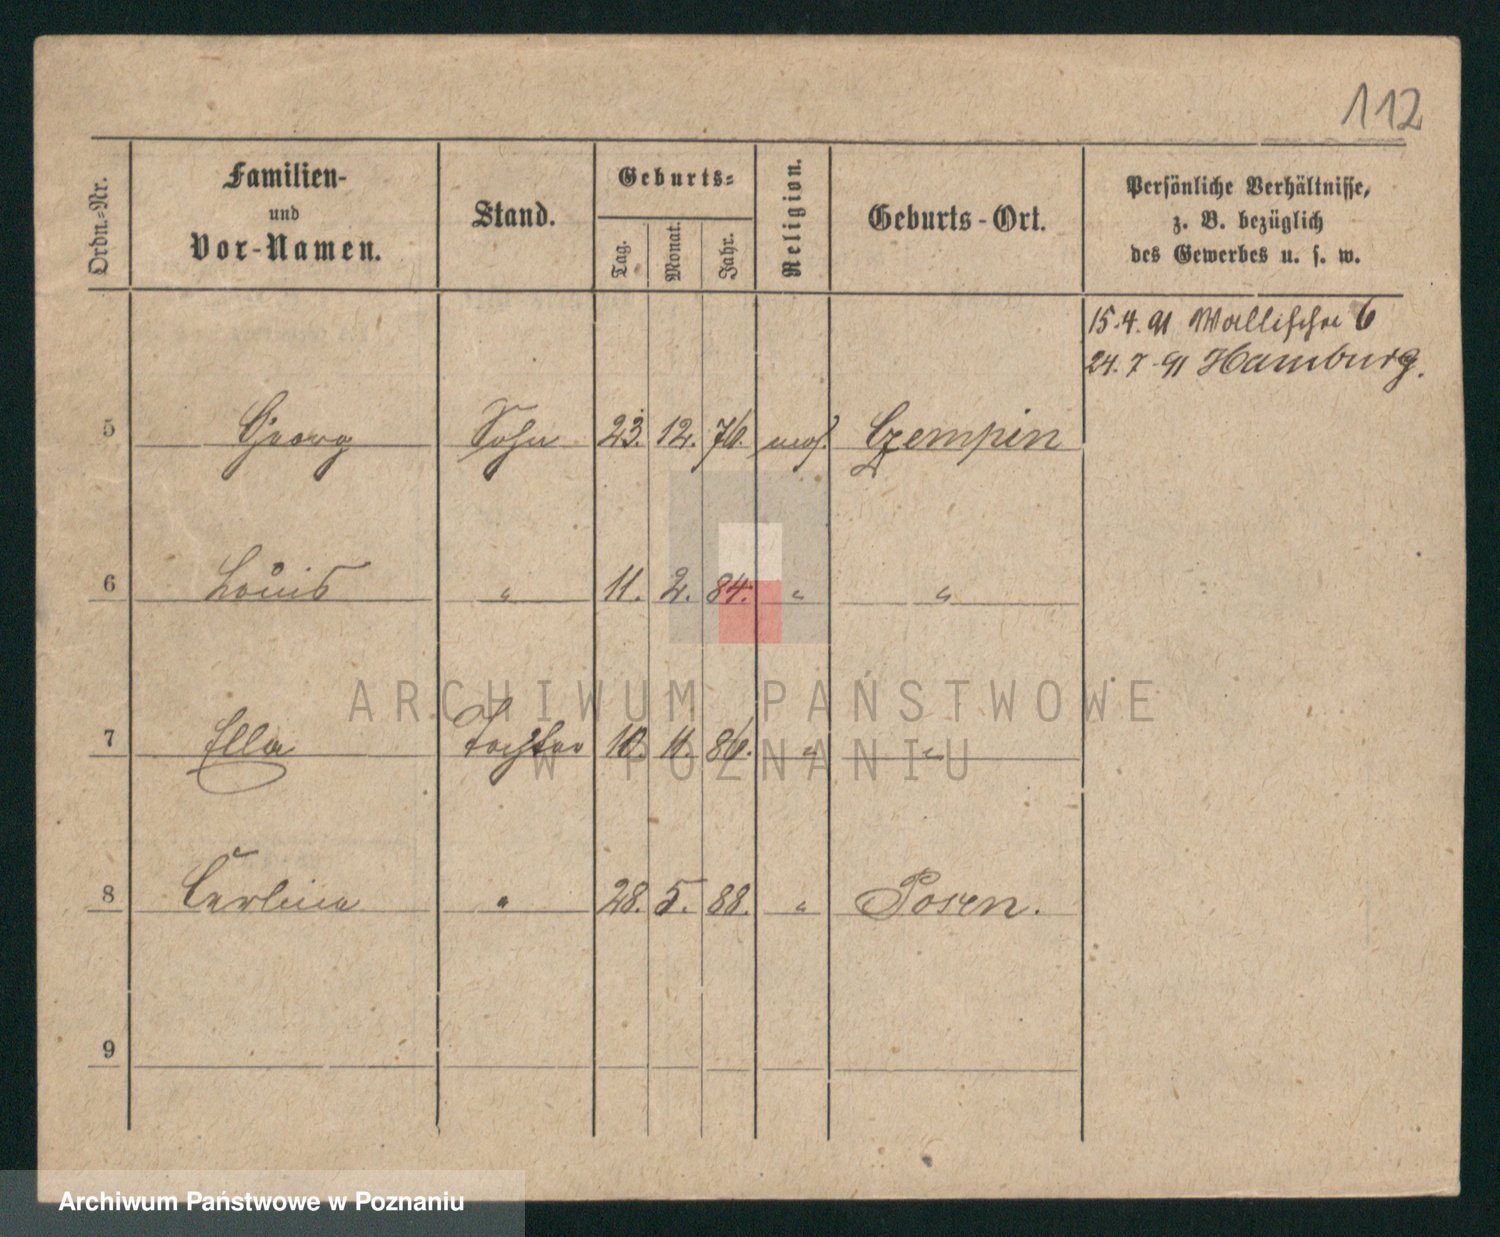 112
Ordn.-Nr.
Familien-
und
Vor-Namen.
Stand.
Geburts-
Tag.
Monat.
Jahr.
Religion.
Geburts-Ort.
Persönliche Verhältnisse,
z. B. bezüglich
des Gewerbes u. s. w.
15.4.91 Wallischei 6
24.7.91 Hamburg.
5 Georg Sohn 23. 12. 76. mos. Czempin
6 Louis " 11. 2. 84. " "
7 Ella Tochter 10. 11. 86. " "
8 " 28. 5. 88. " Posen.
9
ARCHIWUM PAŃSTWOWE
W POZNANIU
Archiwum Państwowe w Poznaniu